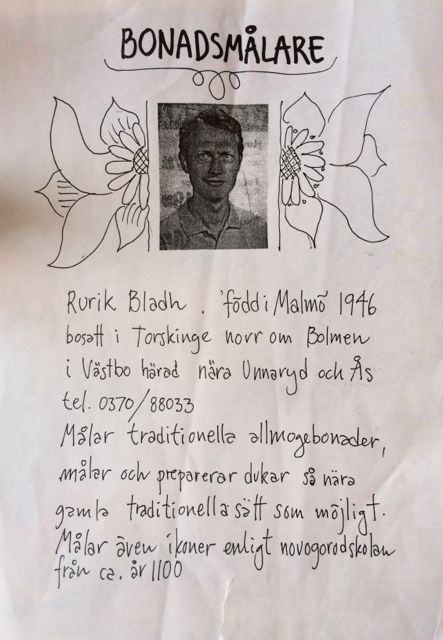 BONADSMÅLARE
Rurik Bladh . född i Malmö 1946
bosatt i Torskinge norr om Bolmen
i Västbo härad nära Unnaryd och Ås
tel. 0370/88033
Målar traditionella allmogebonader,
målar och preparerar dukar så nära
gamla traditionella sätt som möjligt.
Målar även ikoner enligt novogorodskolan
från ca. år 1100